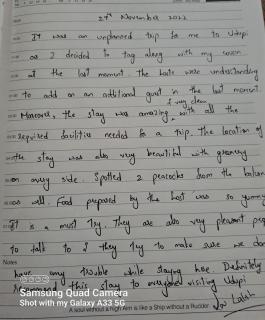 27th November 2022
It was an unplanned trip for me to Udupi
as I decided to tag along with my cousin
at the last moment. The hosts were understanding
to add on an additional guest in the last moment.
& very clean
Moreover, the stay was amazing with all the
required facilities needed for a trip. The location of
the stay was also very beautiful with greenery
on every side. Spotted 2 peacocks from the balcon
as well. Food prepared by the host was so yummy
It is a must try. They are also very pleasant peop
to talk to & they try to make sure we don
Notes
have any trouble while staying here. Definitely
Recommend this stay to everyone visiting Udupi
Samsung Quad Camera
Shot with my Galaxy A33 5G
A soul without a high Aim is like a Ship without a Rudder